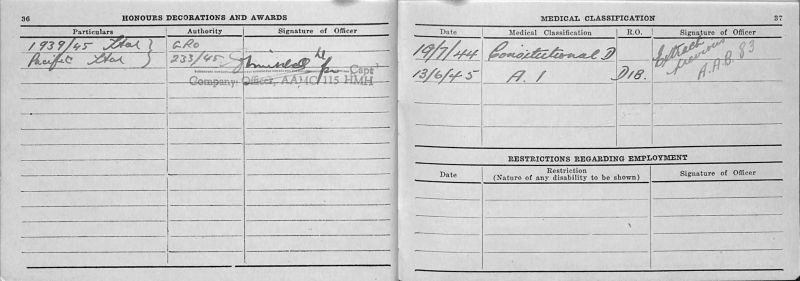 36 HONOURS DECORATIONS AND AWARDS
Particulars Authority Signature of Officer
1939/45 Star } GRO
Pacific Star } 233/45
Capt
Company Officer, AAMC 115 HMH
MEDICAL CLASSIFICATION 37
Date Medical Classification R.O. Signature of Officer
19/7/44 Constitutional D Extract
previous
A.A.B. 83
13/6/45 A. 1 D18.
RESTRICTIONS REGARDING EMPLOYMENT
Date Restriction Signature of Officer
(Nature of any disability to be shown)